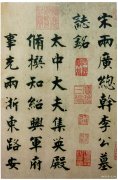 宋兩廣總幹李公墓
誌銘
太中大夫集英殿
脩撰知紹興軍府
事充兩浙東路安